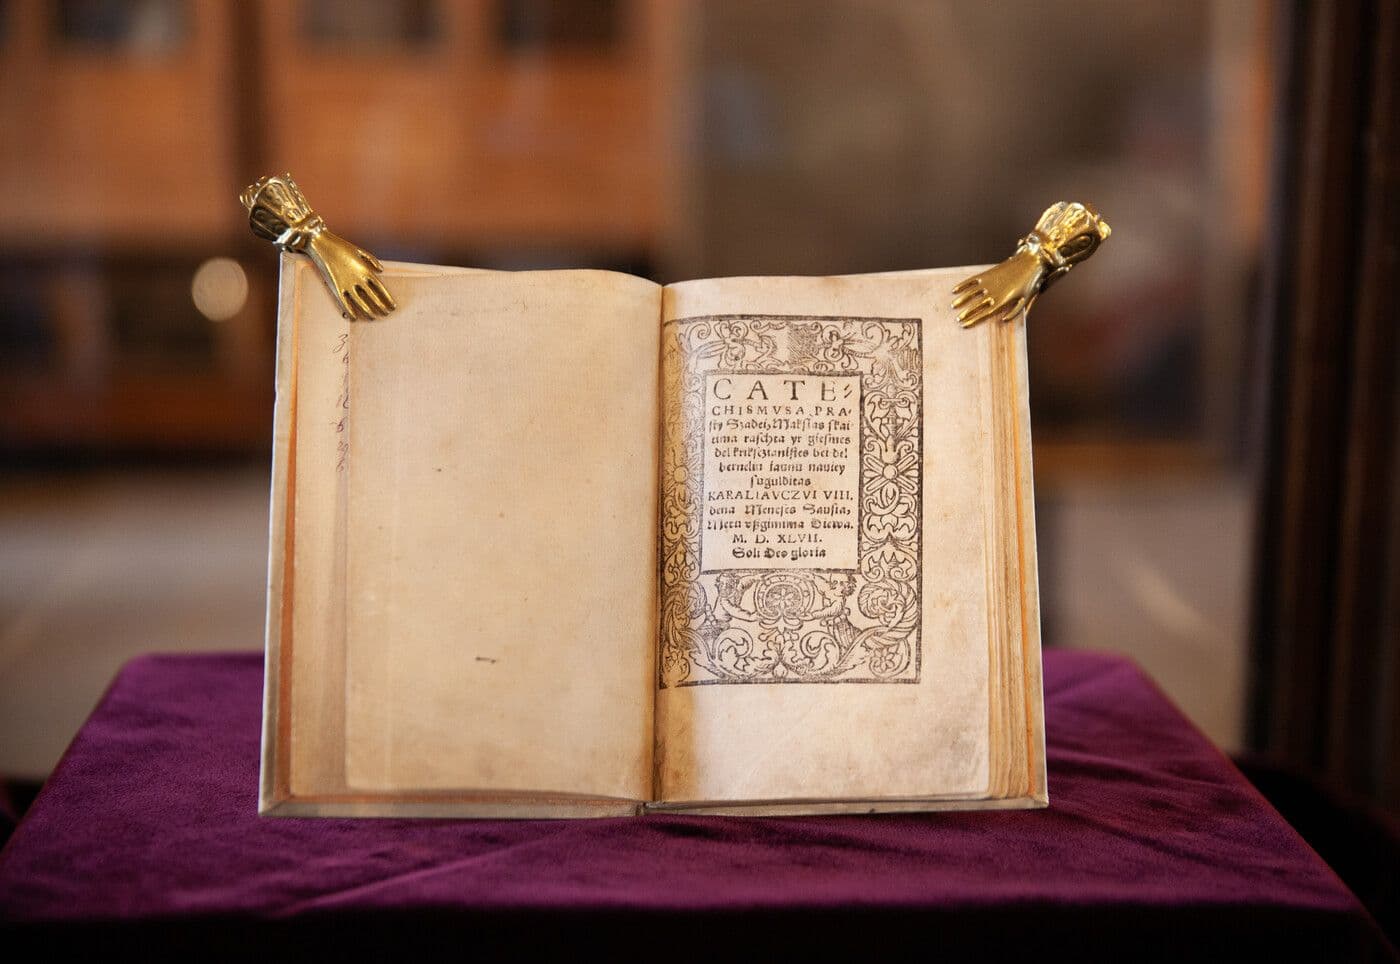 CATE⸗
CHISMVSA PRA⸗
sty Szadei, Makslas skai⸗
tima raschta yr giesmes
del kriksczianistes bei del
bernelu iaunu nauiey
sugulditas
KARALIAVCZVI VIII.
dena Meneses Sausia,
Metu vßgimima Diewa.
M. D. XLVII.
Soli Deo gloria